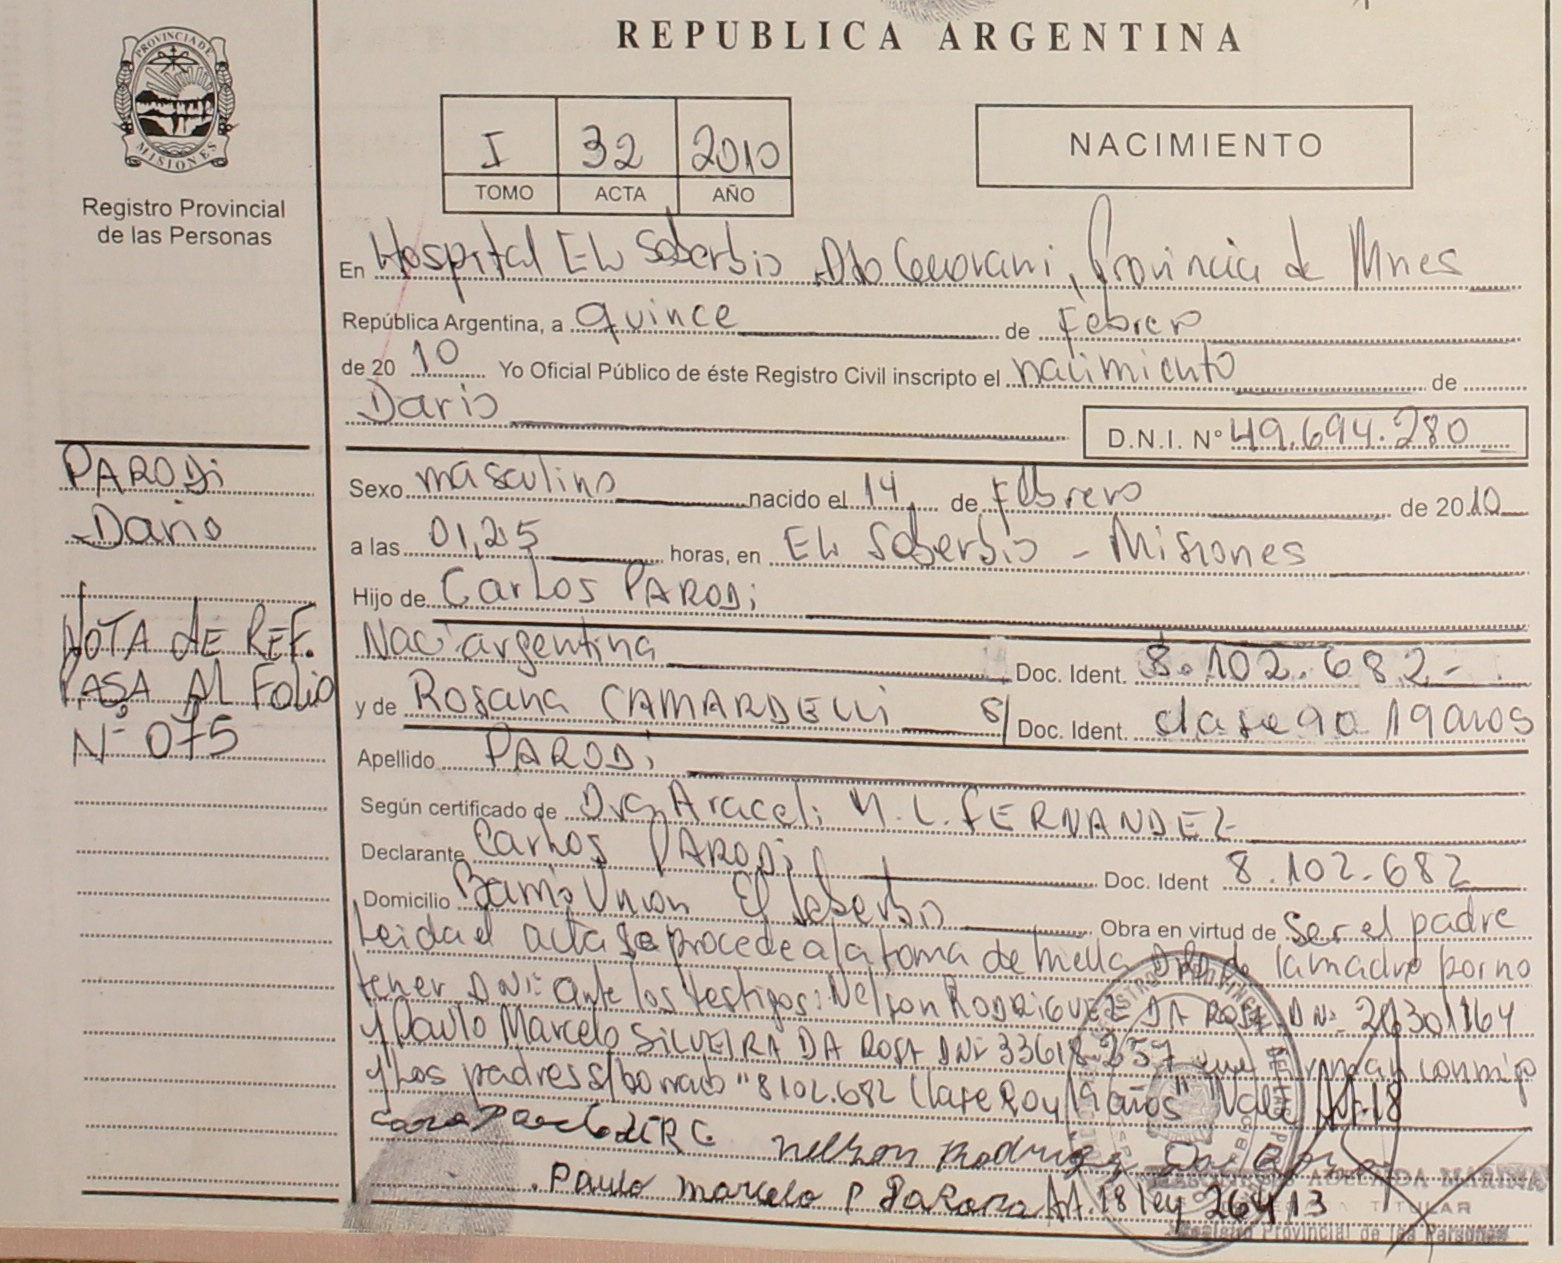 REPUBLICA ARGENTINA
PROVINCIA DE
MISIONES
Registro Provincial
de las Personas
I 32 2010
TOMO ACTA AÑO
NACIMIENTO
En Hospital EL Soberbio Dto Provincia de Mnes
República Argentina, a quince de Febrero
de 2010 Yo Oficial Público de éste Registro Civil inscripto el nacimiento de
Dario
D.N.I. Nº 49.694.280
PARODi
Dario
NOTA dE REF.
PASA AL Folio
Nº 075
Sexo masculino nacido el 14 de Febrero de 2010
a las 01,25 horas, en EL Soberbio - Misiones
Hijo de CarLos PARODi
Nac. argentina Doc. Ident. 8.102.682-
y de Rosana CAMARDELLi s/ Doc. Ident. clase 90 19 años
Apellido PARODi
Según certificado de Dra Araceli M. L. FERNANDEZ
Declarante CarLos PARODi Doc. Ident 8.102.682
Domicilio Barrio Union El Soberbio Obra en virtud de Ser el padre
Leida el acta se procede a la toma de huella de la madre por no
tener DNI: ante los testigos: Nelson RODRIGUEZ DA ROSA DNº
y Paulo Marcelo SILVEIRA DA ROSA DNº 33618257 que firman conmigo
y Los padres s/borrado "8102.682 Clase 90 y 19 años" Vale Art. 18
Nelson Rodriguez
Paulo marcelo Art. 18 ley 26413
TITULAR
Registro Provincial de las Personas